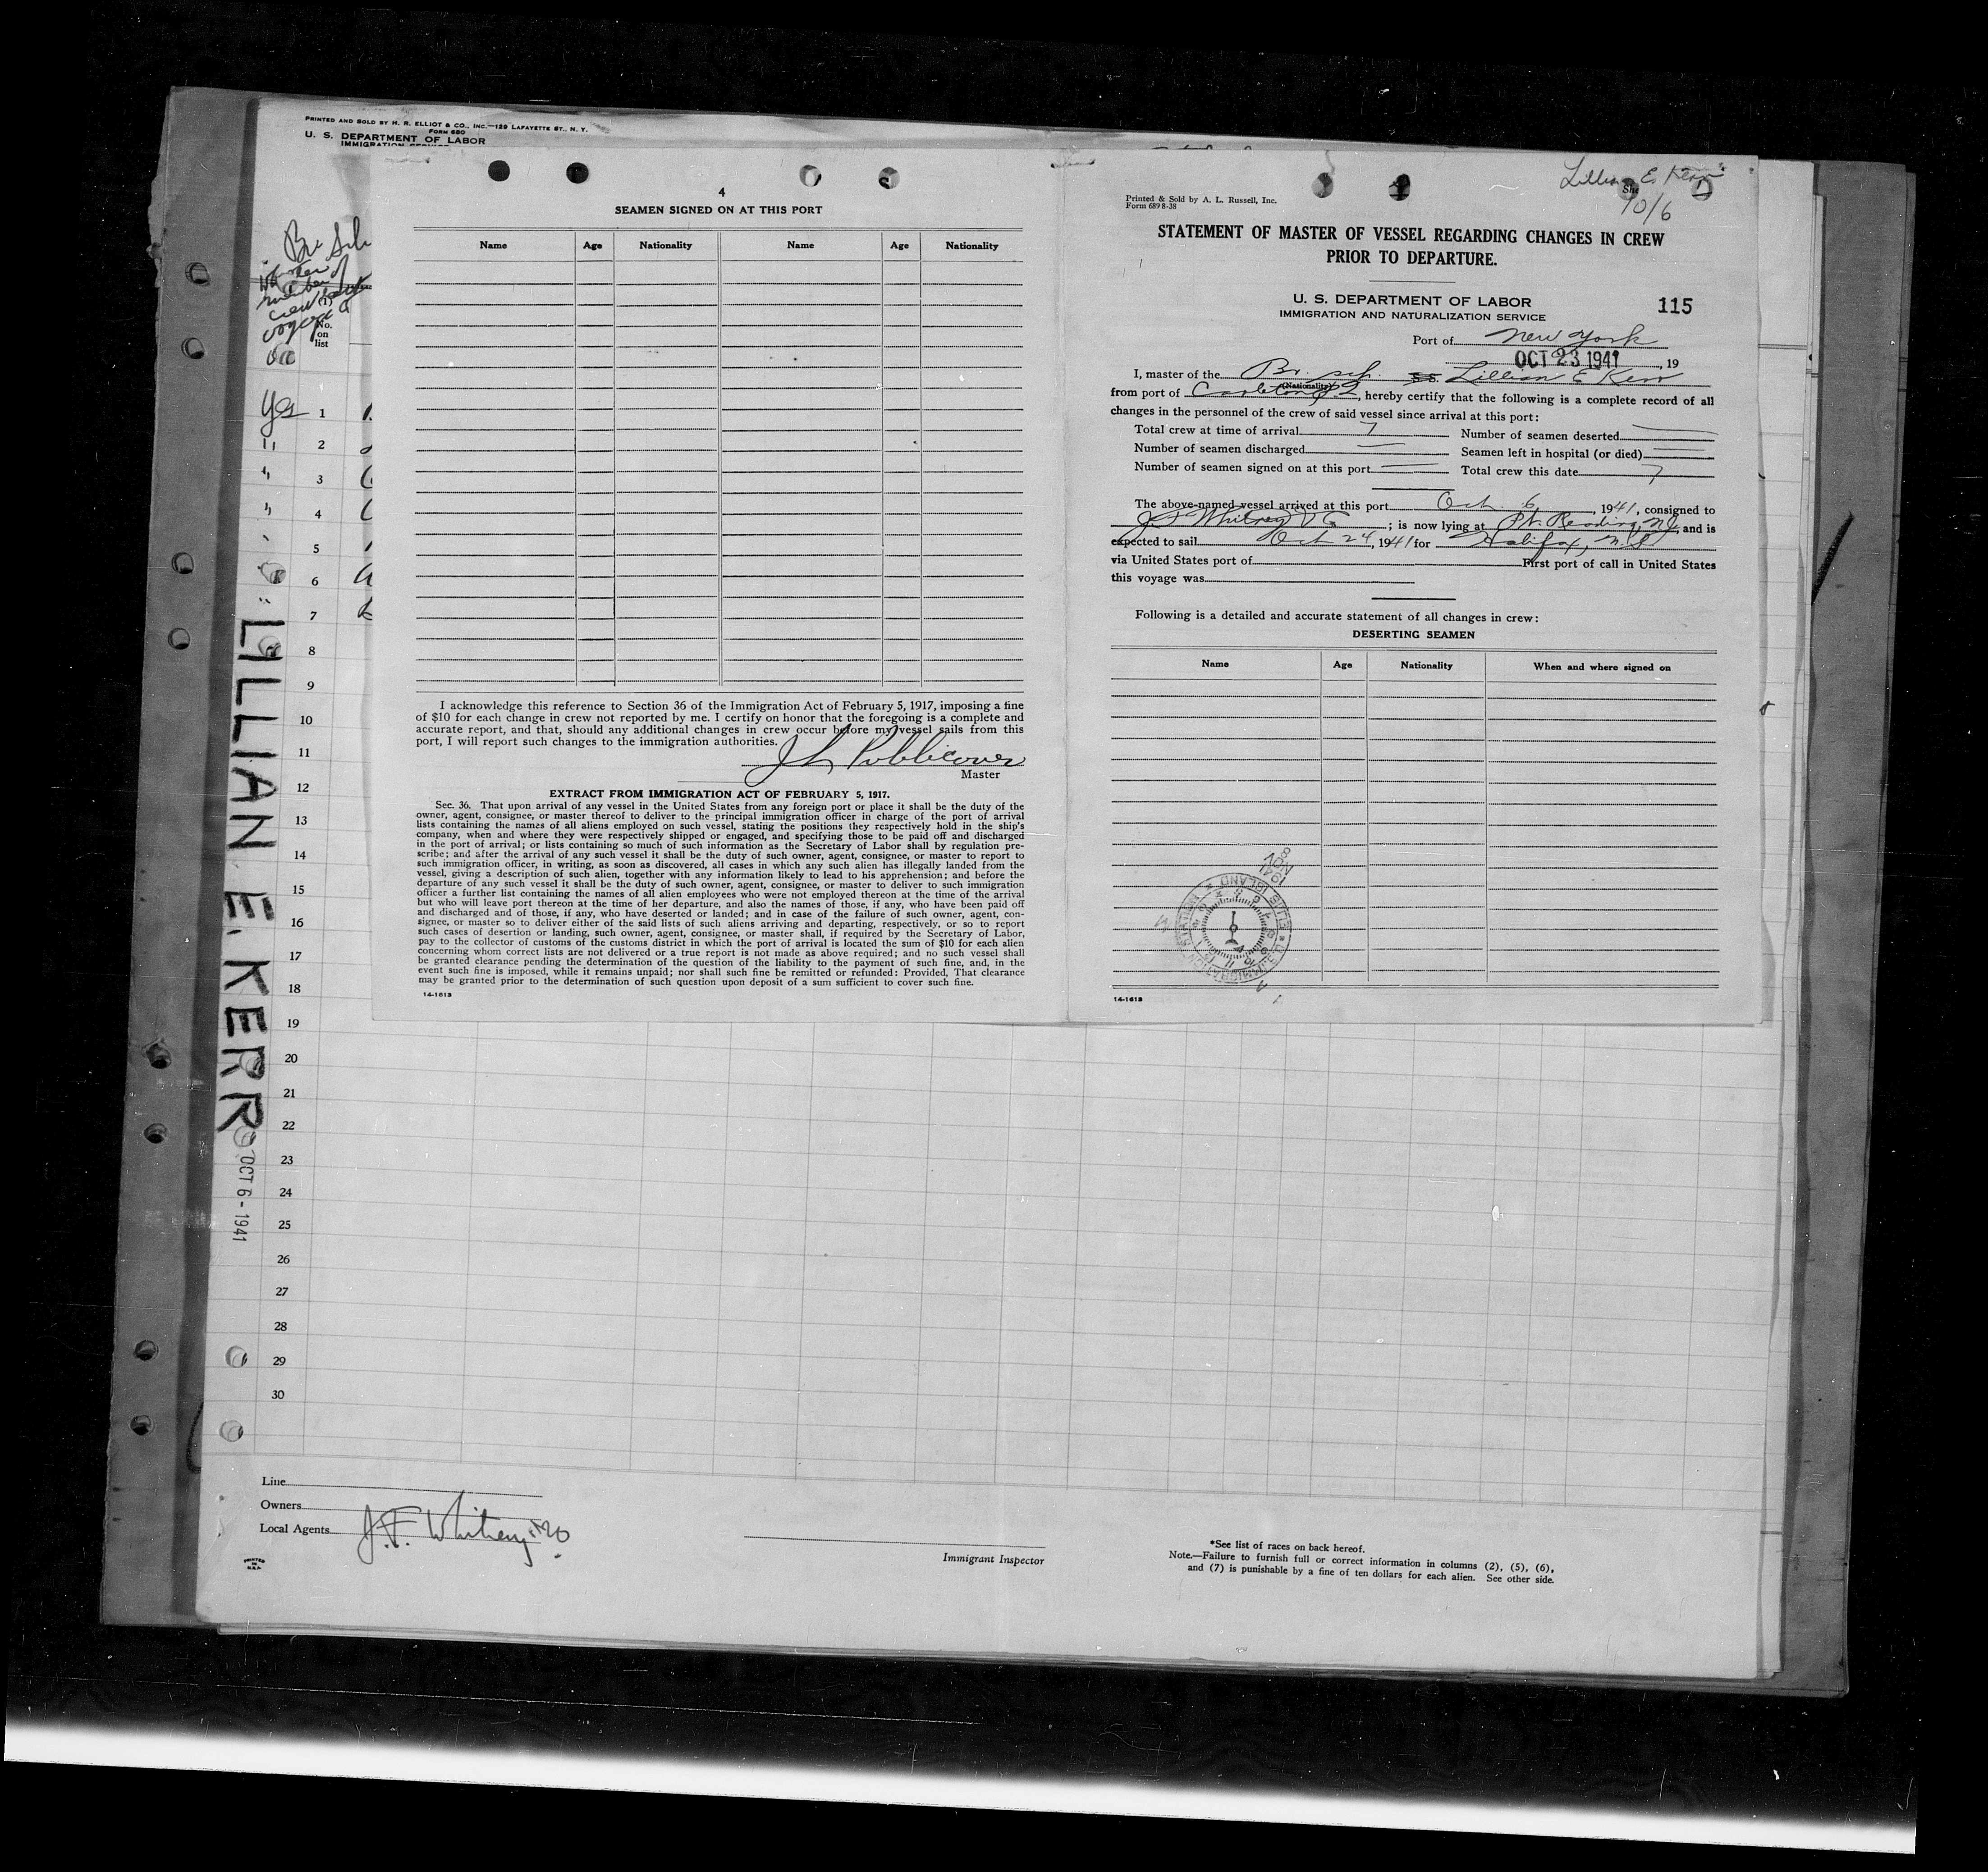 PRINTED AND SOLD BY H. R. ELLIOT & CO., INC.—129 LAFAYETTE ST., N. Y.
FORM 680
U. S. DEPARTMENT OF LABOR
Br Sch
(1)
No.
on
list
Yes 1
" 2
" 3
" 4
5
6
7
8
9
10
11
12
13
14
15
16
17
18
19
20
21
22
23
24
25
26
27
28
29
30
LILLIAN E. KERR
OCT 6 - 1941
4
SEAMEN SIGNED ON AT THIS PORT
Name Age Nationality Name Age Nationality
I acknowledge this reference to Section 36 of the Immigration Act of February 5, 1917, imposing a fine
of $10 for each change in crew not reported by me. I certify on honor that the foregoing is a complete and
accurate report, and that, should any additional changes in crew occur before my vessel sails from this
port, I will report such changes to the immigration authorities.
Publicover
Master
EXTRACT FROM IMMIGRATION ACT OF FEBRUARY 5, 1917.
Sec. 36. That upon arrival of any vessel in the United States from any foreign port or place it shall be the duty of the
owner, agent, consignee, or master thereof to deliver to the principal immigration officer in charge of the port of arrival
lists containing the names of all aliens employed on such vessel, stating the positions they respectively hold in the ship's
company, when and where they were respectively shipped or engaged, and specifying those to be paid off and discharged
in the port of arrival; or lists containing so much of such information as the Secretary of Labor shall by regulation pre-
scribe; and after the arrival of any such vessel it shall be the duty of such owner, agent, consignee, or master to report to
such immigration officer, in writing, as soon as discovered, all cases in which any such alien has illegally landed from the
vessel, giving a description of such alien, together with any information likely to lead to his apprehension; and before the
departure of any such vessel it shall be the duty of such owner, agent, consignee, or master to deliver to such immigration
officer a further list containing the names of all alien employees who were not employed thereon at the time of the arrival
but who will leave port thereon at the time of her departure, and also the names of those, if any, who have been paid off
and discharged and of those, if any, who have deserted or landed; and in case of the failure of such owner, agent, con-
signee, or master so to deliver either of the said lists of such aliens arriving and departing, respectively, or so to report
such cases of desertion or landing, such owner, agent, consignee, or master shall, if required by the Secretary of Labor,
pay to the collector of customs of the customs district in which the port of arrival is located the sum of $10 for each alien
concerning whom correct lists are not delivered or a true report is not made as above required; and no such vessel shall
be granted clearance pending the determination of the question of the liability to the payment of such fine, and, in the
event such fine is imposed, while it remains unpaid; nor shall such fine be remitted or refunded: Provided, That clearance
may be granted prior to the determination of such question upon deposit of a sum sufficient to cover such fine.
14-1613
Lillian E. Kerr
10/6
Printed & Sold by A. L. Russell, Inc.
Form 689 8-38
STATEMENT OF MASTER OF VESSEL REGARDING CHANGES IN CREW
PRIOR TO DEPARTURE.
U. S. DEPARTMENT OF LABOR
IMMIGRATION AND NATURALIZATION SERVICE
115
Port of New York
OCT 23 1941, 19
I, master of the Br. sch. S.S. Lillian E Kerr
(Nationality)
from port of Carleton, hereby certify that the following is a complete record of all
changes in the personnel of the crew of said vessel since arrival at this port:
Total crew at time of arrival 7 Number of seamen deserted
Number of seamen discharged Seamen left in hospital (or died)
Number of seamen signed on at this port Total crew this date 7
The above-named vessel arrived at this port Oct. 6, 1941, consigned to
J F Whitney & Co; is now lying at Pt. Reading, NJ, and is
expected to sail Oct 24, 1941 for Halifax, N.S
via United States port of First port of call in United States
this voyage was
Following is a detailed and accurate statement of all changes in crew:
DESERTING SEAMEN
Name Age Nationality When and where signed on
1941 NOV 8
U. S. IMMIGRATION ELLIS ISLAND
14-1613
Line
Owners
Local Agents J.F. Whitney & Co.
PRINTED IN U.S.A.
Immigrant Inspector
*See list of races on back hereof.
Note.—Failure to furnish full or correct information in columns (2), (5), (6),
and (7) is punishable by a fine of ten dollars for each alien. See other side.